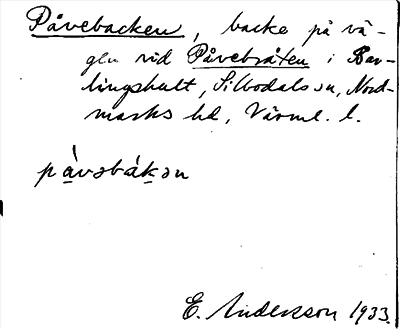 Påvebacken, backe på vä-
gen vid Påvebråten i Bar-
lingshult, Silbodals sn, Nord-
marks hd, Värml. l.
pàvəbákən
E. Andersson 1933.